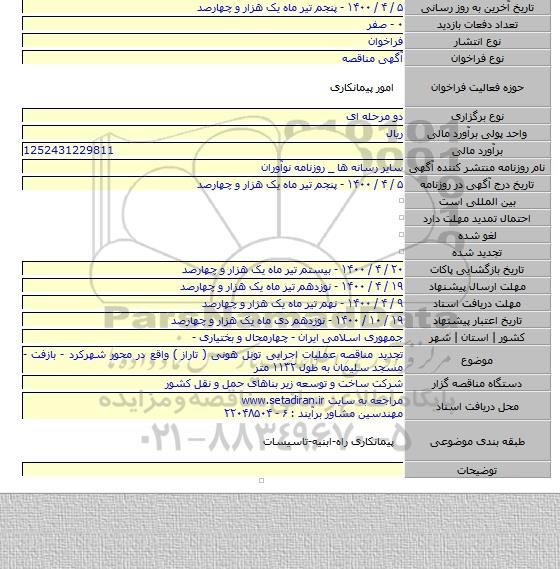 تاریخ آخرین به روز رسانی ۵ / ۴ / ۱۴۰۰ - پنجم تیر ماه یک هزار و چهارصد
تعداد دفعات بازدید ۰ - صفر
نوع انتشار فراخوان
نوع فراخوان آگهی مناقصه
حوزه فعالیت فراخوان امور پیمانکاری
نوع برگزاری دو مرحله ای
واحد پولی برآورد مالی ریال
برآورد مالی 1252431229811
نام روزنامه منتشر کننده آگهی سایر رسانه ها _ روزنامه نوآوران
تاریخ درج آگهی در روزنامه ۵ / ۴ / ۱۴۰۰ - پنجم تیر ماه یک هزار و چهارصد
بین المللی است
احتمال تمدید مهلت دارد
لغو شده
تجدید شده
تاریخ بازگشایی پاکات ۲۰ / ۴ / ۱۴۰۰ - بیستم تیر ماه یک هزار و چهارصد
مهلت ارسال پیشنهاد ۱۹ / ۴ / ۱۴۰۰ - نوزدهم تیر ماه یک هزار و چهارصد
مهلت دریافت اسناد ۹ / ۴ / ۱۴۰۰ - نهم تیر ماه یک هزار و چهارصد
تاریخ اعتبار پیشنهاد ۱۹ / ۱۰ / ۱۴۰۰ - نوزدهم دی ماه یک هزار و چهارصد
کشور | استان | شهر جمهوری اسلامی ایران - چهارمحال و بختیاری -
موضوع تجدید مناقصه عملیات اجرایی تونل هونی ( تاراز ) واقع در محور شهرکرد - بازفت -
مسجد سلیمان به طول ۱۱۳۲ متر
دستگاه مناقصه گزار شرکت ساخت و توسعه زیر بناهای حمل و نقل کشور
محل دریافت اسناد مراجعه به سایت www.setadiran.ir
مهندسین مشاور برآیند : ۶ - ۲۲۰۴۸۵۰۴
طبقه بندی موضوعی پیمانکاری راه-ابنیه-تاسیسات
توضیحات
۰۲۱-۸۸۳۴۹۶۷۰-۵